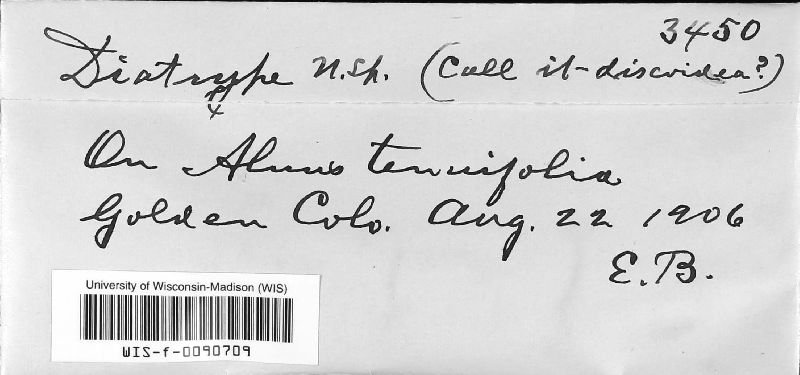 3450
Diatrype n.sp. (Call it-discoidea?)
On Alnus tenuifolia
Golden Colo. Aug. 22 1906
E.B.
University of Wisconsin-Madison (WIS)
WIS-f-0090709